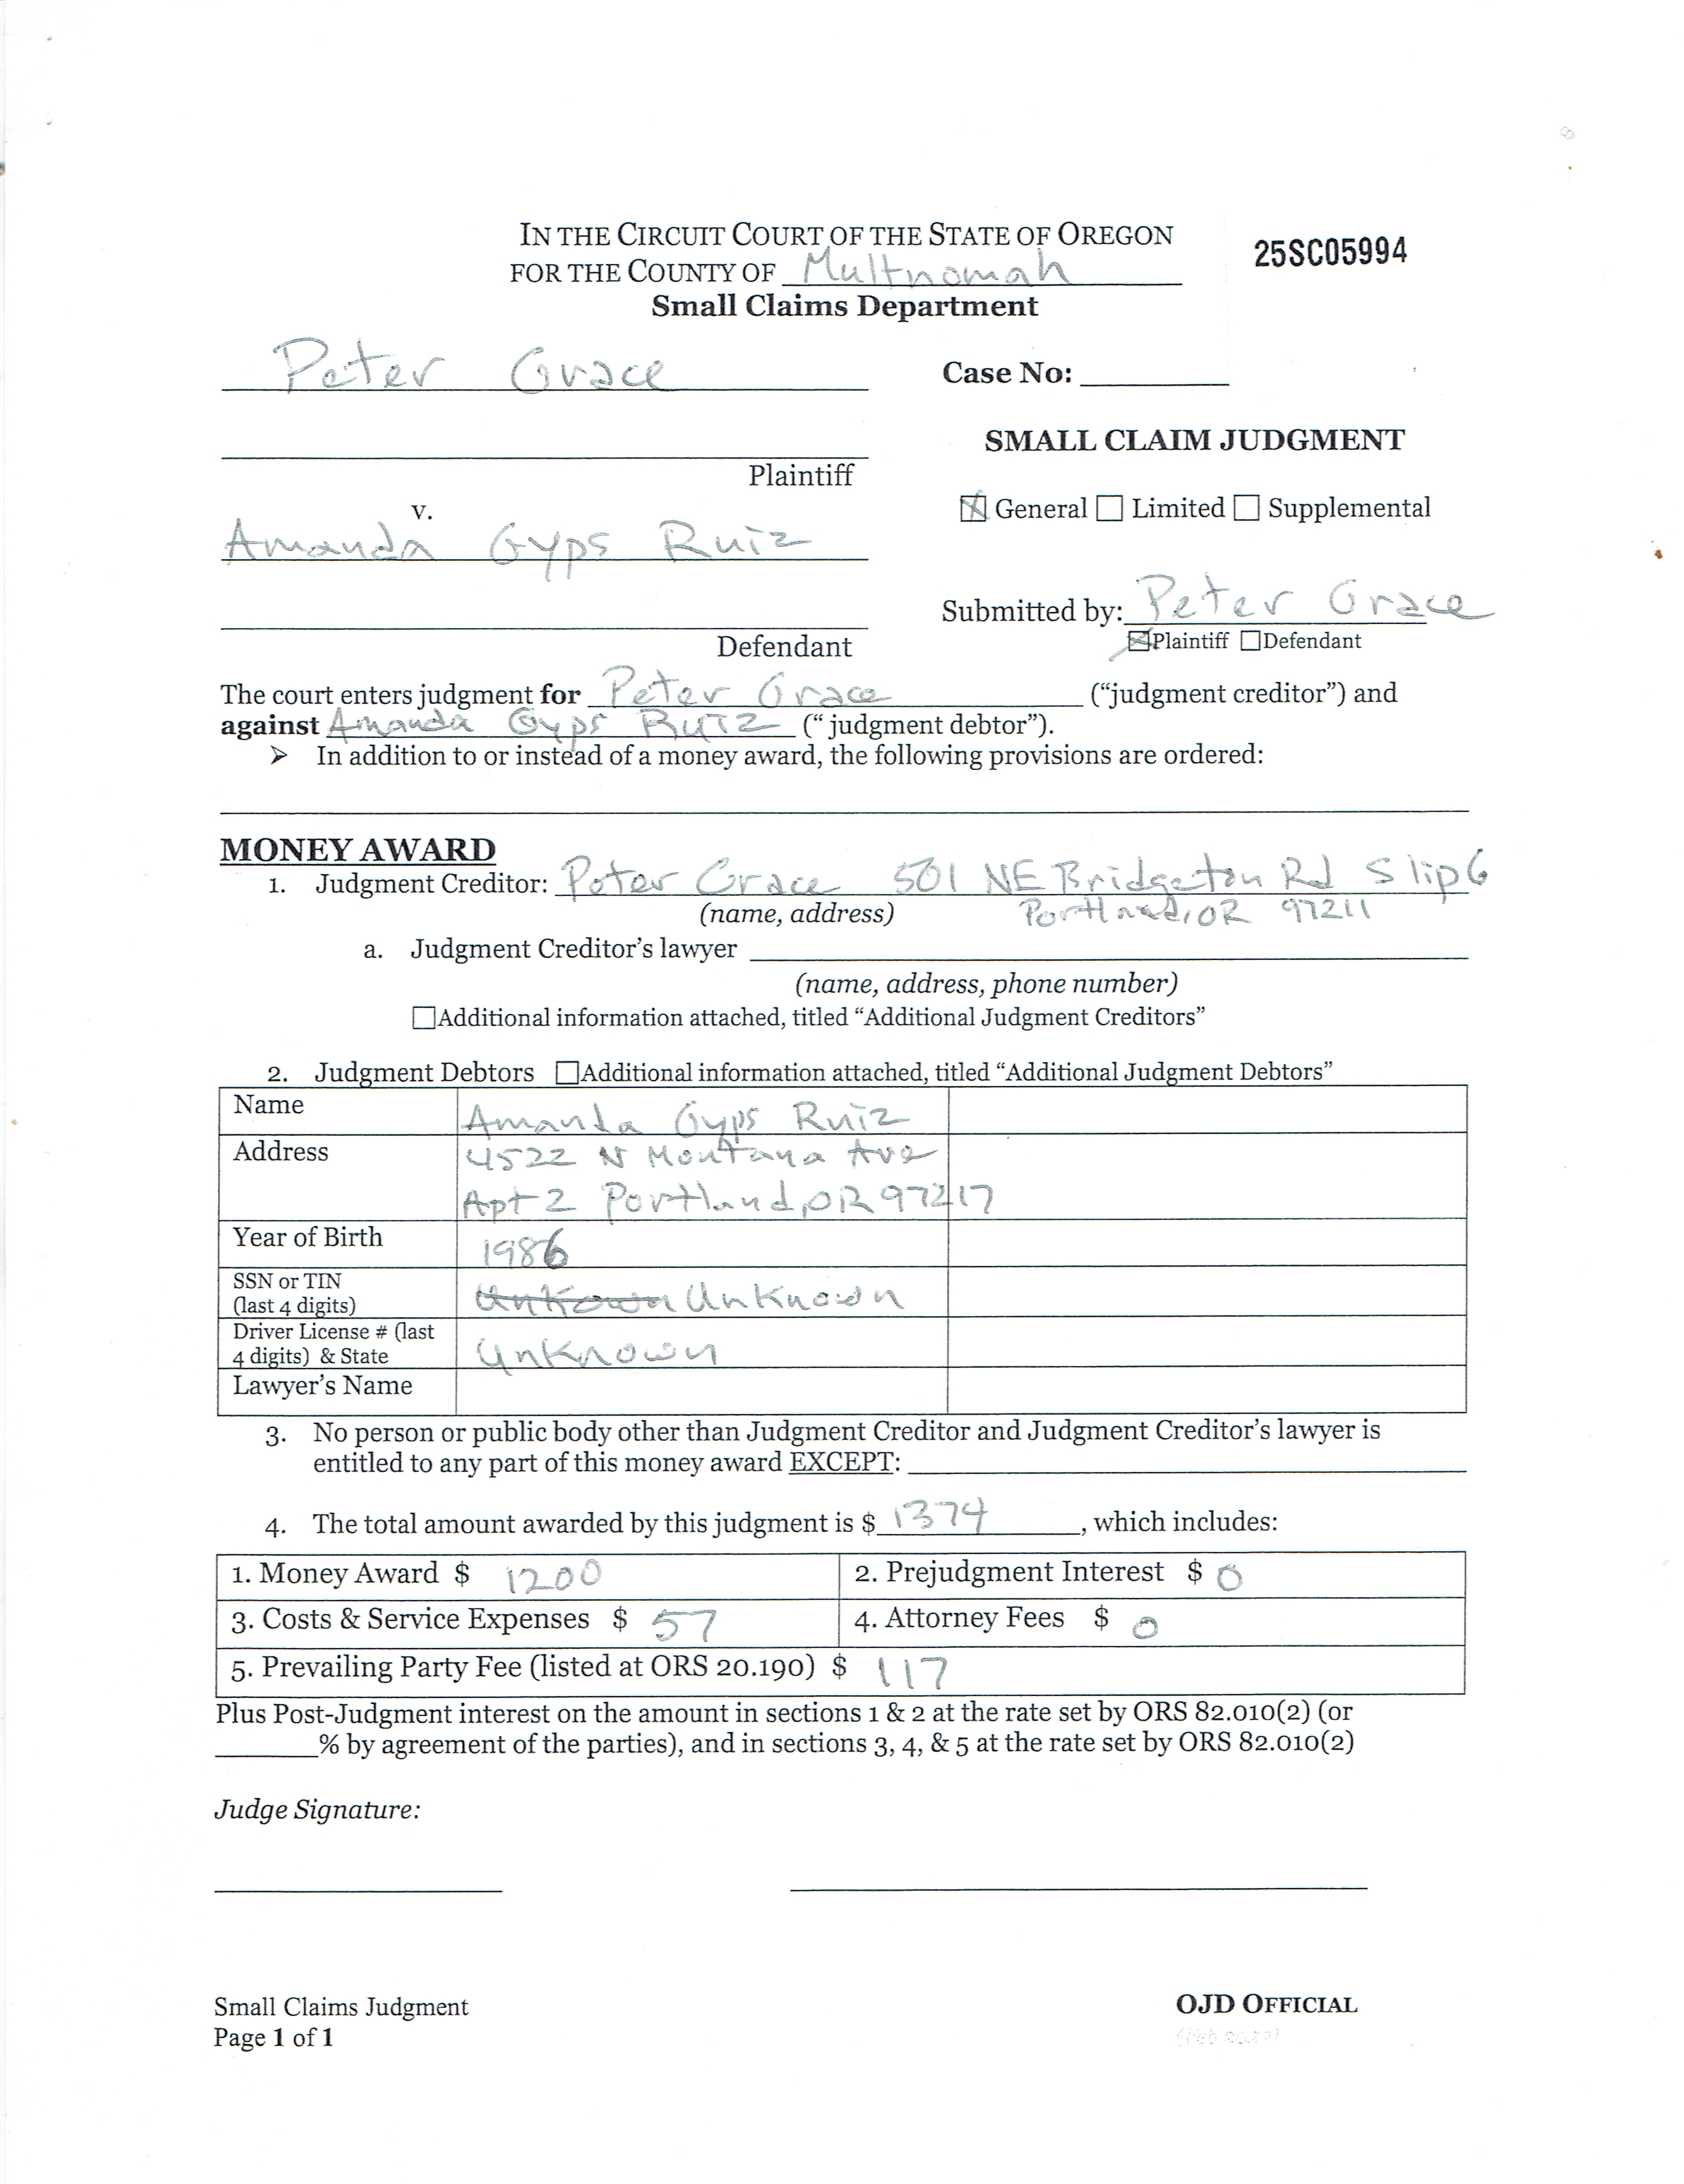 IN THE CIRCUIT COURT OF THE STATE OF OREGON
FOR THE COUNTY OF Multnomah
25SC05994
Small Claims Department
Peter Grace
Case No: ________
SMALL CLAIM JUDGMENT
Plaintiff
v.
☒ General ☐ Limited ☐ Supplemental
Amanda Gyps Ruiz
Submitted by: Peter Grace
☒Plaintiff ☐Defendant
Defendant
The court enters judgment for Peter Grace ("judgment creditor") and
against Amanda Gyps Ruiz (" judgment debtor").
➢ In addition to or instead of a money award, the following provisions are ordered:
MONEY AWARD
1. Judgment Creditor: Peter Grace 501 NE Bridgeton Rd Slip 6
(name, address) Portland, OR 97211
a. Judgment Creditor's lawyer
(name, address, phone number)
☐Additional information attached, titled "Additional Judgment Creditors"
2. Judgment Debtors ☐Additional information attached, titled "Additional Judgment Debtors"
Name Amanda Gyps Ruiz
Address 4522 N Montana Ave
Apt 2 Portland, OR 97217
Year of Birth 1986
SSN or TIN
(last 4 digits) Unkown Unknown
Driver License # (last
4 digits) & State Unknown
Lawyer's Name
3. No person or public body other than Judgment Creditor and Judgment Creditor's lawyer is
entitled to any part of this money award EXCEPT:
4. The total amount awarded by this judgment is $ 1374, which includes:
1. Money Award $ 1200 2. Prejudgment Interest $ 0
3. Costs & Service Expenses $ 57 4. Attorney Fees $ 0
5. Prevailing Party Fee (listed at ORS 20.190) $ 117
Plus Post-Judgment interest on the amount in sections 1 & 2 at the rate set by ORS 82.010(2) (or
_______% by agreement of the parties), and in sections 3, 4, & 5 at the rate set by ORS 82.010(2)
Judge Signature:
Small Claims Judgment
OJD OFFICIAL
Page 1 of 1